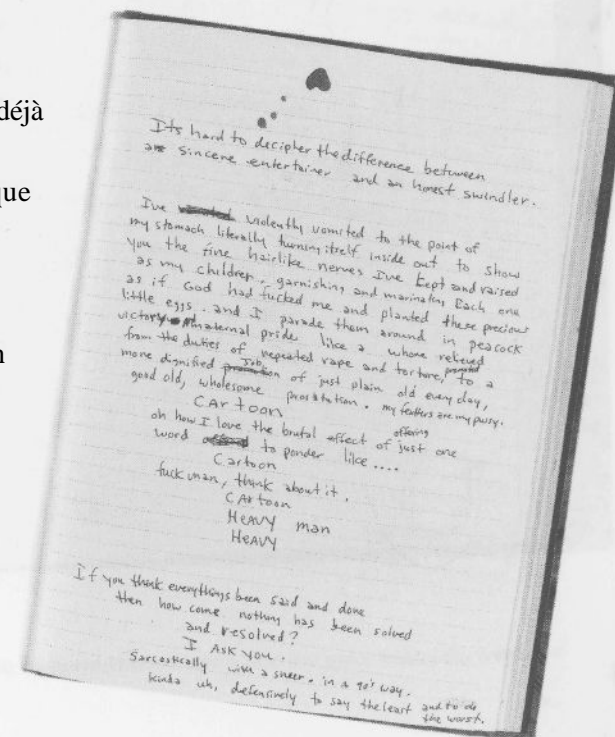 déjà
que
Its hard to decipher the difference between
a sincere entertainer and an honest swindler.
I've violently vomited to the point of
my stomach literally turning itself inside out to show
you the fine hairlike nerves I've kept and raised
as my children, garnishing and marinating Each one
as if God had fucked me and planted these precious
little eggs. and I parade them around in peacock
victory maternal pride like a whore relieved
from the duties of repeated rape and torture, promoted to a
more dignified job of just plain old every day,
good old, wholesome prostitution. my feathers are my pussy.
CARtoon
oh how I love the brutal effect of just one
offering
word to ponder like ....
Cartoon
fuck man, think about it.
CARtoon
HEAVY man
HEAVY
If you think everythings been said and done
then how come nothing has been solved
and resolved?
I ASK YOU.
Sarcastically with a sneer. in a 90's way.
kinda uh, defensively to say the least and to do
the worst.